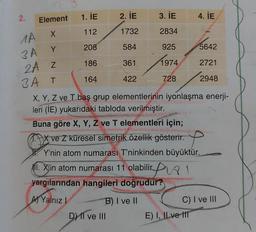 2. Element 1. İE 2. İE 3. İE 4. İE
1A X 112 1732 2834
3A Y 208 584 925 5642
2A Z 186 361 1974 2721
3A T 164 422 728 2948
X, Y, Z ve T baş grup elementlerinin iyonlaşma enerji-
leri (İE) yukarıdaki tabloda verilmiştir.
Buna göre X, Y, Z ve T elementleri için;
I. X ve Z küresel simetrik özellik gösterir.
II. Y'nin atom numarası T'ninkinden büyüktür.
III. X'in atom numarası 11 olabilir.
yargılarından hangileri doğrudur?
A) Yalnız I B) I ve II C) I ve III
D) II ve III E) I, II ve III